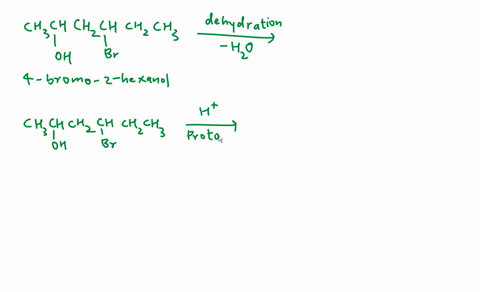 CH3CH CH2CH CH2CH3 dehydration
OH Br -H2O
4-bromo-2-hexanol
CH3CHCH2CH CH2CH3 H+
OH Br Proto